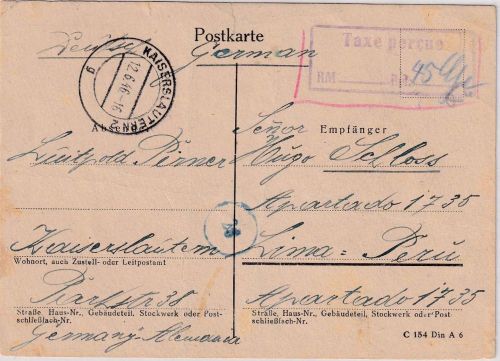 Postkarte
Deutsch German
KAISERSLAUTERN 2
12.6.46.-16
b
Taxe perçue
RM
45
Absender
Luitpold
Kaiserslautern
Wohnort, auch Zustell- oder Leitpostamt
Parkstr 38
Straße, Haus-Nr., Gebäudeteil, Stockwerk oder Post-
schließfach-Nr.
Germany-Alemania
Señor
Empfänger
Hugo Schloss
Apartado 1735
Lima = Perú
Apartado 1735
Straße, Haus-Nr., Gebäudeteil, Stockwerk oder Post-
schließfach-Nr.
C 154 Din A 6